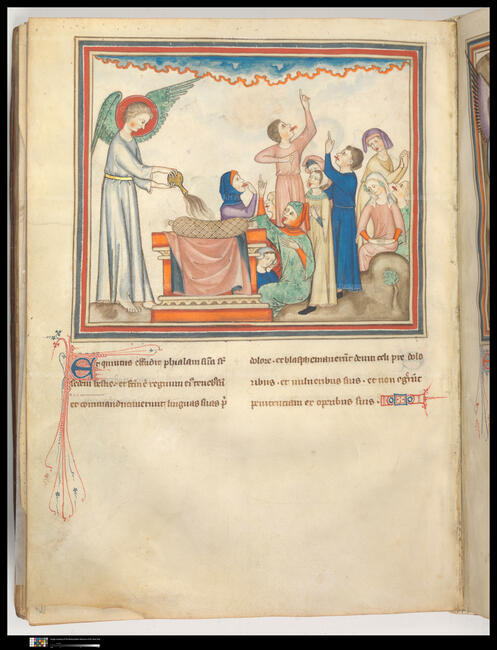 Et quintus effudit phialam suā sr̄
sedem bestie · et fctm̄ ē regnum eiꝰ tenebrosū
et commanducauerunt linguas suas p̄
dolore · et blasphemauerūt deum celi pre dolo
ribus · et uulneribus suis · et non egerūt
penitentiam ex operibus suis ·